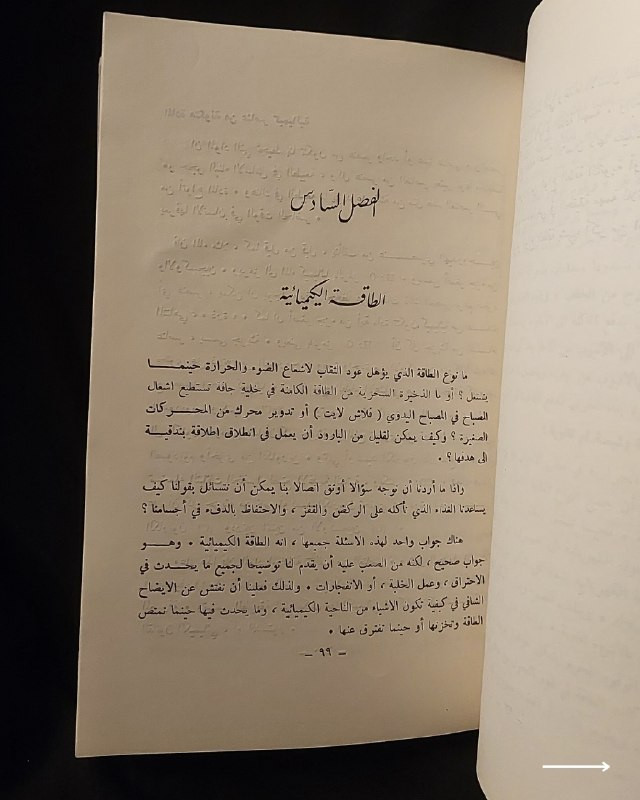 الفصل السادس
الطاقة الكيميائية
ما نوع الطاقة الذي يؤهل عود الثقاب لاشعاع الضوء والحرارة حينما
يشتعل ؟ أو ما الذخيرة السحرية من الطاقة الكامنة في خلية جافة تستطيع اشعال
المصباح في المصباح اليدوي ( فلاش لايت ) أو تدوير محرك من المحركات
الصغيرة ؟ وكيف يمكن لقليل من البارود أن يعمل في انطلاق اطلاقة بندقية
الى هدفها ؟ •
واذا ما أردنا أن نوجه سؤالا أوثق اتصالا بنا يمكن أن نتسائل بقولنا كيف
يساعدنا الغذاء الذي نأكله على الركض والقفز ، والاحتفاظ بالدفء في أجسامنا ؟
هناك جواب واحد لهذه الاسئلة جميعها ، انه الطاقة الكيميائية • وهو
جواب صحيح ، لكنه من الصعب عليه أن يقدم لنا توضيحا لجميع ما يحدث في
الاحتراق ، وعمل الخلية ، أو الانفجارات • ولذلك فعلينا أن نفتش عن الايضاح
الشافي في كيفية تكون الاشياء من الناحية الكيميائية ، وما يحدث فيها حينما تمتص
الطاقة وتخزنها أو حينما تفترق عنها •
– ٩٩ –